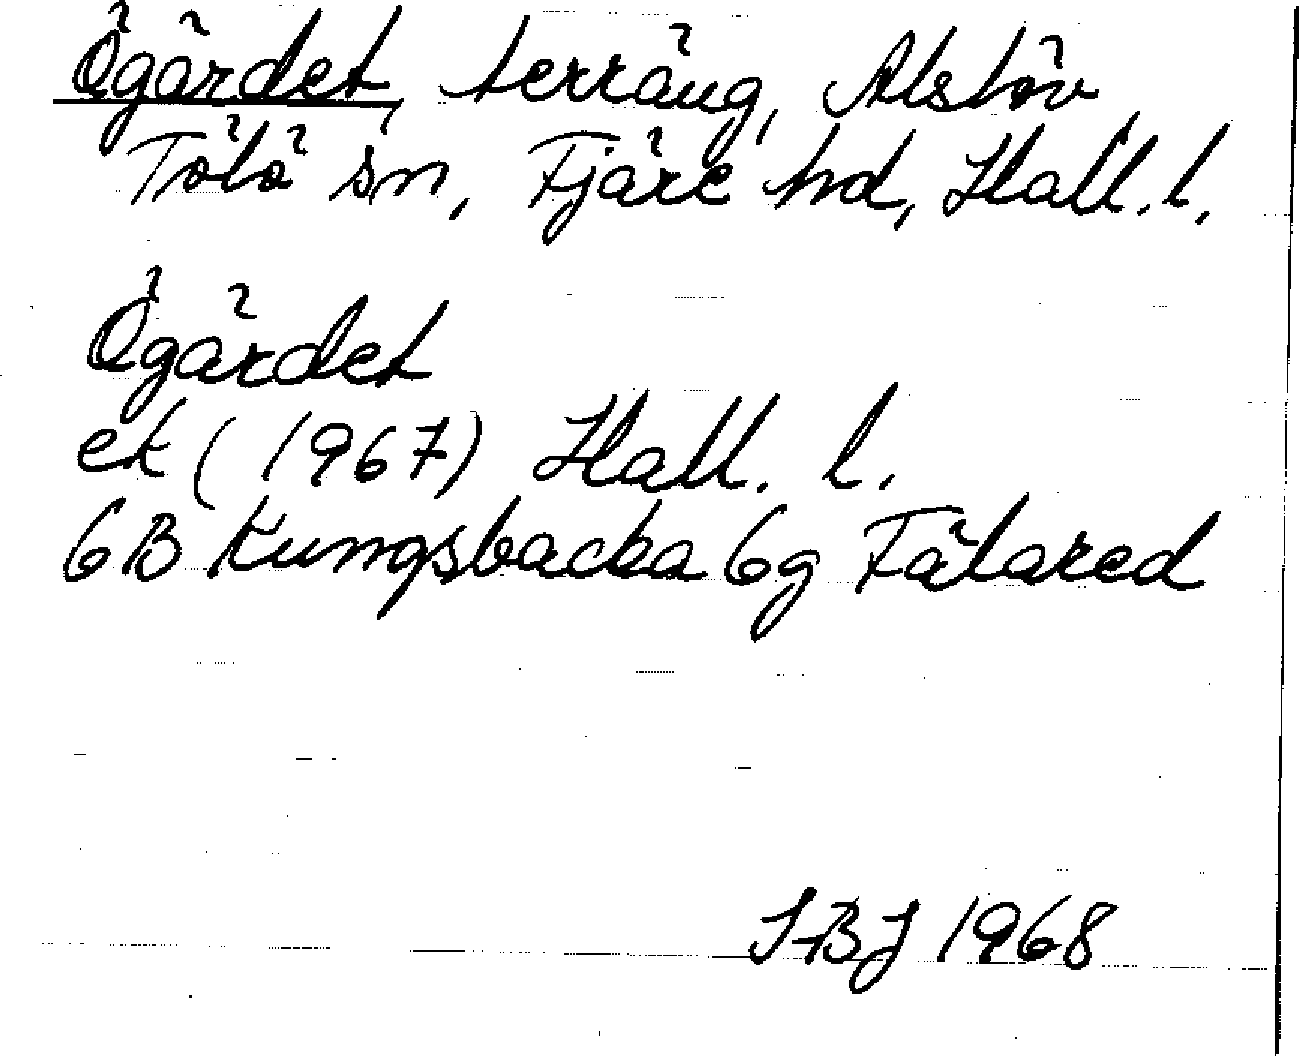 Ögärdet, terräng, Alstöv
Tölö sn, Fjäre hd, Hall. l.
Ögärdet
ek (1967) Hall. l.
6B Kungsbacka 6g Fätared
SBJ 1968